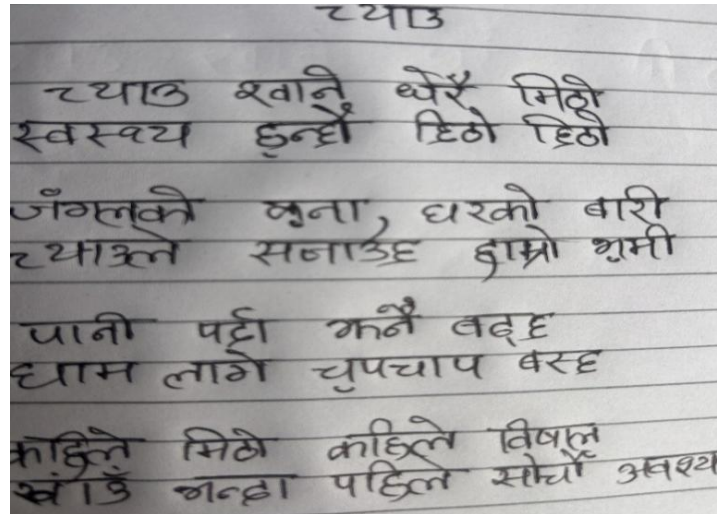 च्याउ
च्याउ खाने धेरै मिठो
स्वस्थ्य हुन्छौ छिटो छिटो
जंगलको कुना, घरको बारी
च्याउले सजाउँछ हाम्रो भूमी
पानी पर्दा झनै बढ्छ
घाम लागे चुपचाप बस्छ
कहिले मिठो कहिले विषालु
खाउँ भन्दा पहिले सोचौं अवश्य